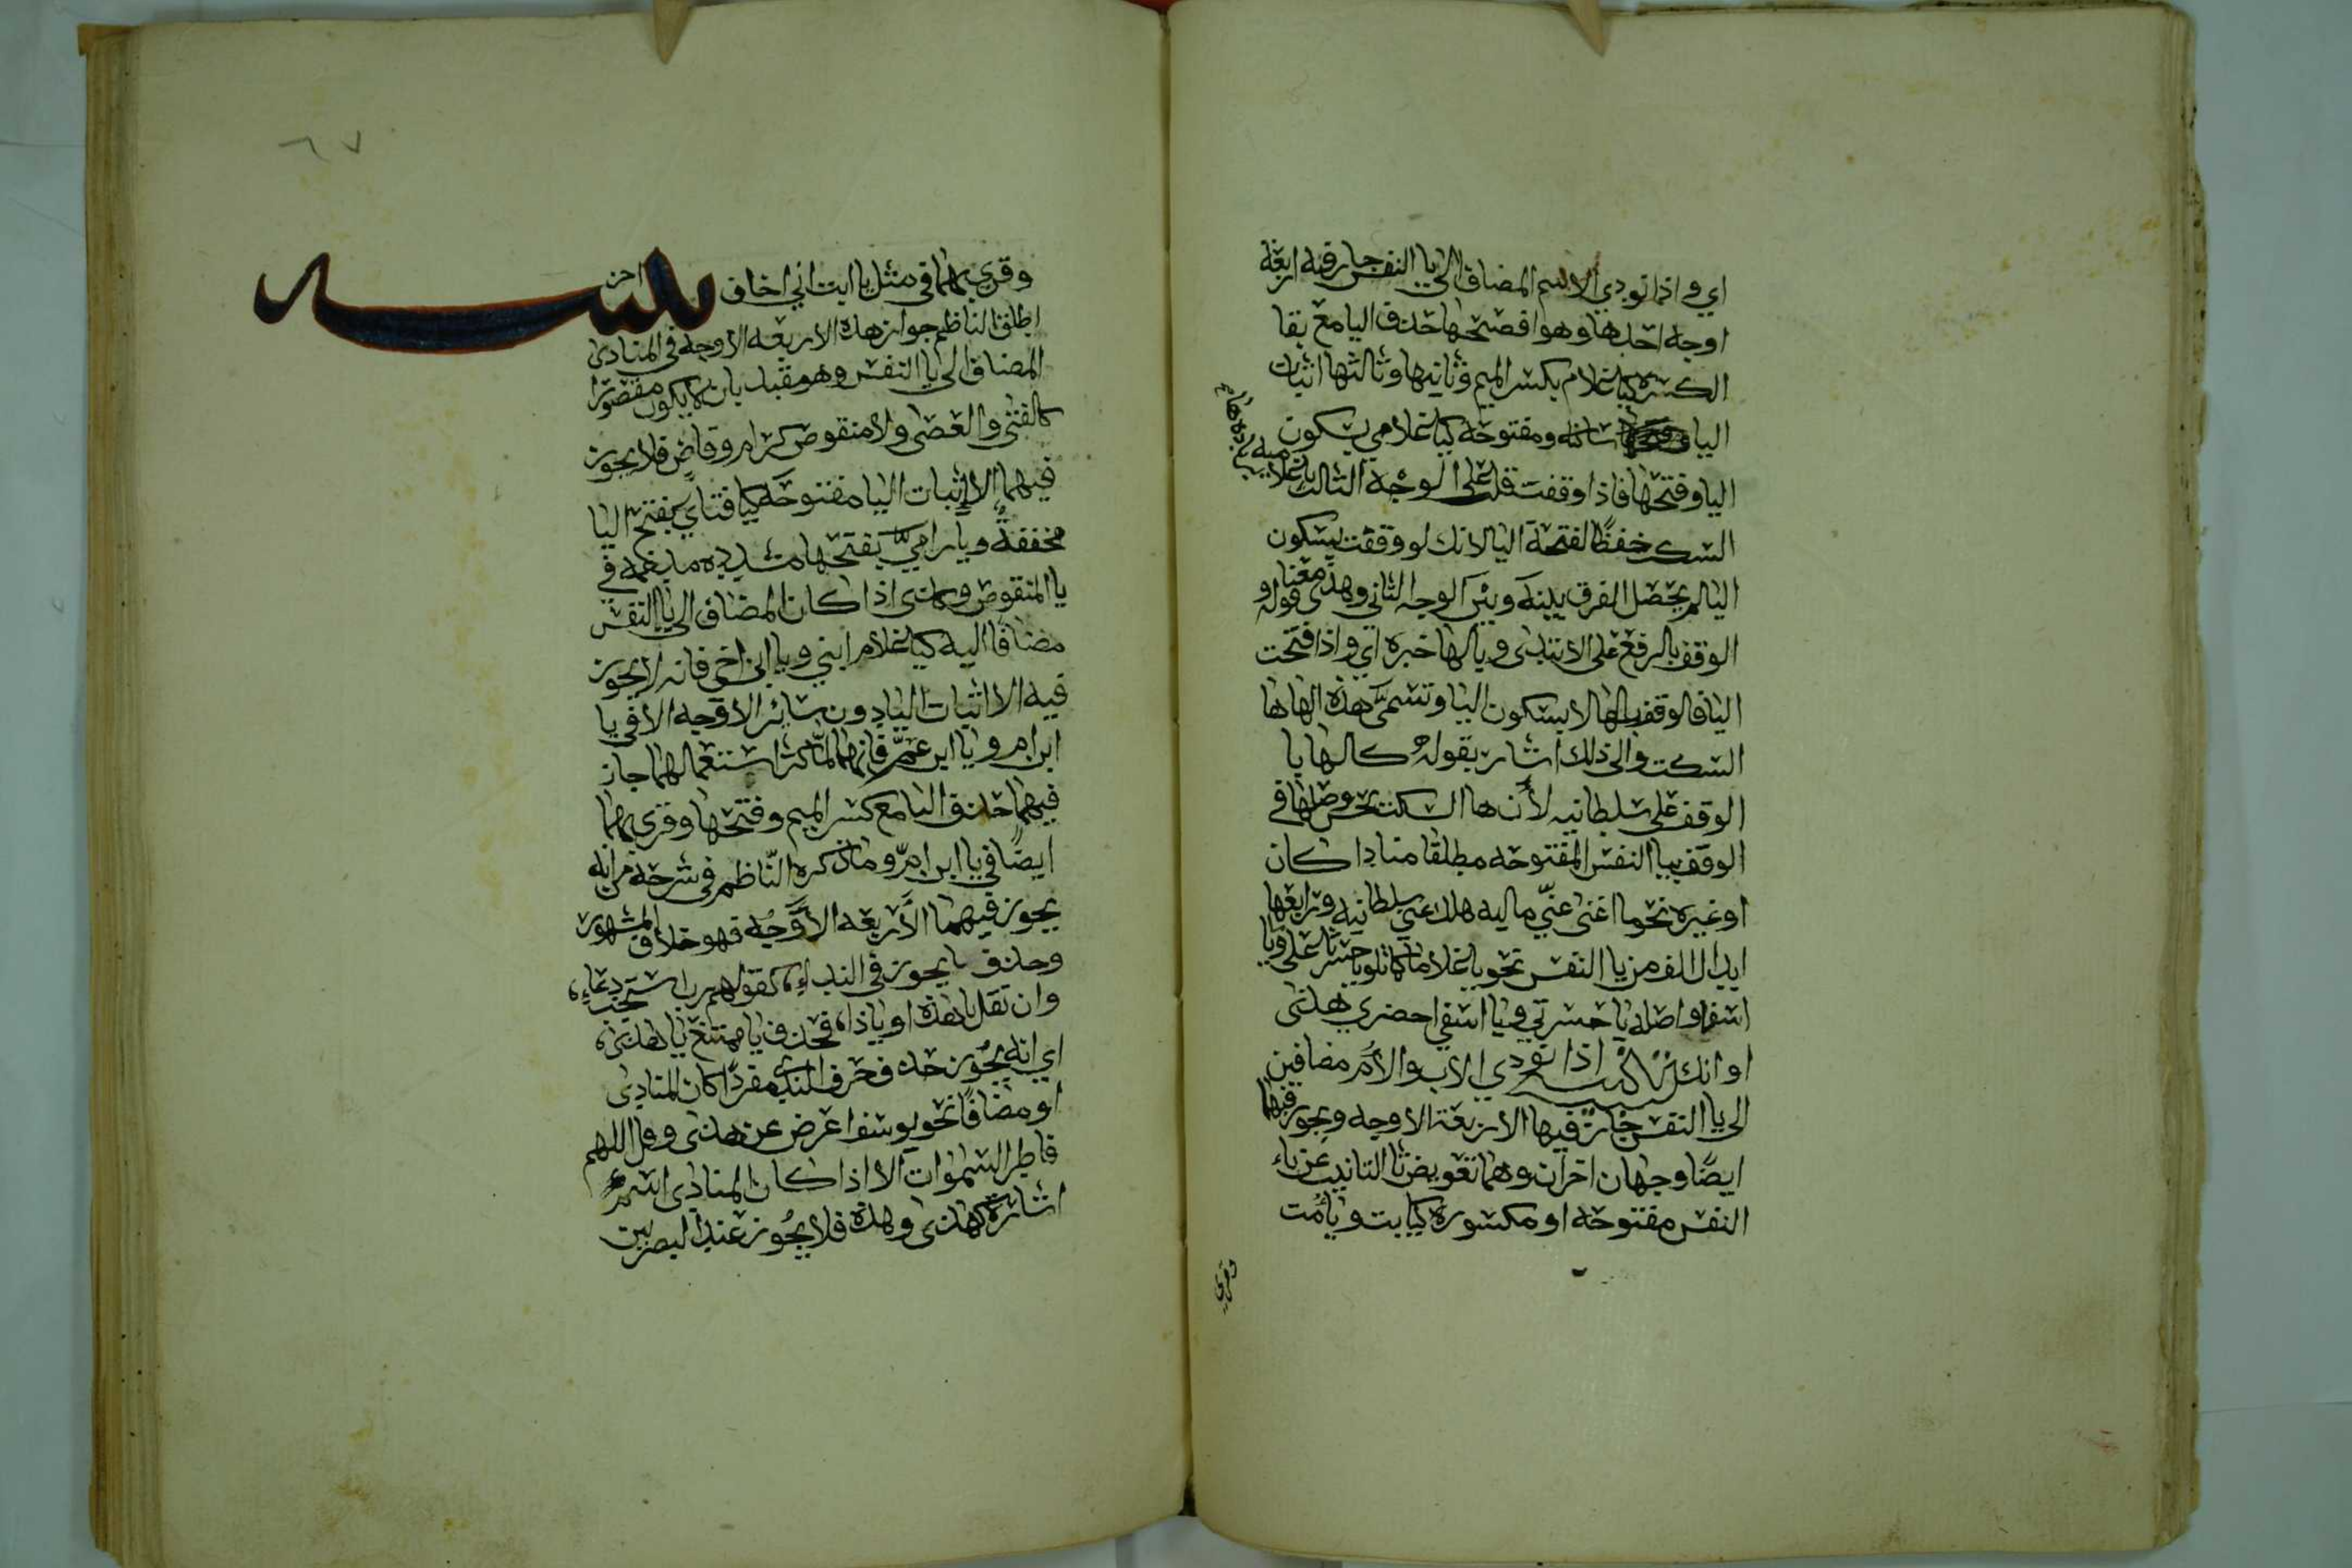 اي واذا نودي الاسم المضاف الى يا النفس جاز فيه اربعة
اوجه احدها وهو افصحها حذف اليا مع بقا
الكسره كيا غلام بكسر الميم وثانيها وثالثها اثبات
اليا ساكنه ومفتوحه كيا غلامي بسكون
اليا وفتحها فاذا وقفت قلت على الوجه الثالث يا غلاميه
السكت حفظا لفتحة اليا لانك لو وقفت بسكون
اليا لم يحصل الفرق بينه وبين الوجه الثاني وهذا معنا قوله و
الوقف بالرفع على الابتدى وبالها خبره اي واذا فتحت
اليا فالوقف بالها لا بسكون اليا وتسمى هذه الها ها
السكت والى ذلك اشار بقوله كالها يا
الوقف على سلطانيه لأن ها السكت في
الوقف بيا النفس المفتوحه مطلقا منادا كان
او غيره نحو ما اغنى عنّي ماليه هلك عني سلطانيه ورابعها
ابدال الف من يا النفس نحو يا غلاما كما تلو يا حسرتا على ويا
اسفا واصله يا حسرتي ويا اسفي احضري هذى
اوانك تنبيه اذا نودي الاب والأم مضافين
الى يا النفس جازت فيها الاربعة الاوجه ويجوز فيها
ايضًا وجهان اخران وهما تعويض تا التانيث عن ياء
النفس مفتوحه او مكسورة كيا ابت ويا أمت
وقري
٦٧
وقري بهما في مثل يا ابت اني اخاف تنبيه اخر
اطلق الناظم جواز هذه الاربعه الاوجه في المنادى
المضاف الى يا النفس وهو مقيد بان لا يكون مقصورا
كالفتى والعصى ولا منقوص كرام وقاضٍ فلا يجوز
فيهما الا اثبات اليا مفتوحه كيا فتاي بفتح اليا
مخففةً ويا راميّ بفتحها مشدده مدغمه في
يا المنقوص وكذى اذا كان المضاف الى يا النفس
مضافا اليه كيا غلام ابني ويا ابن اخي فانه لا يجوز
فيه الا اثبات اليا دون سائر الاوجه الا في يا
ابن ام ويا ابن عمّ فانهما لمّا كثر استعمالهما جاز
فيهما حذف اليا مع كسر الميم وفتحها وقري بهما
ايضًا في يا ابن امّ وما ذكره النّاظم في شرحه من انه
يجوز فيهما الأربعه الأوجُه فهو خلاف المشهور
وحذف يا يجوز في النداء، كقولهم رب استجب دعاءِ،
وان تقل يا هذه او يا ذا، فحذف يا ممتنع يا هذى،
اي انه يجُوز حذف حرف الندى مفردًا كان المنادى
او مضافًا نحو يوسف اعرض عن هذى وقل اللهم
فاطر السموات الا اذا كان المنادى اسم
اشارة كهذى وهذه فلا يجُوز عند البصريين